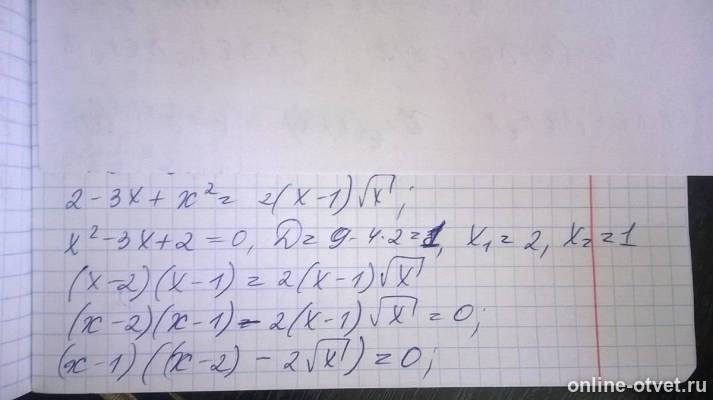 2 - 3x + x² = 2(x-1)√x;
x² - 3x + 2 = 0, D = 9 - 4·2 = 1, x₁ = 2, x₂ = 1
(x-2)(x-1) = 2(x-1)√x
(x-2)(x-1) - 2(x-1)√x = 0;
(x-1)((x-2) - 2√x) = 0;
online-otvet.ru